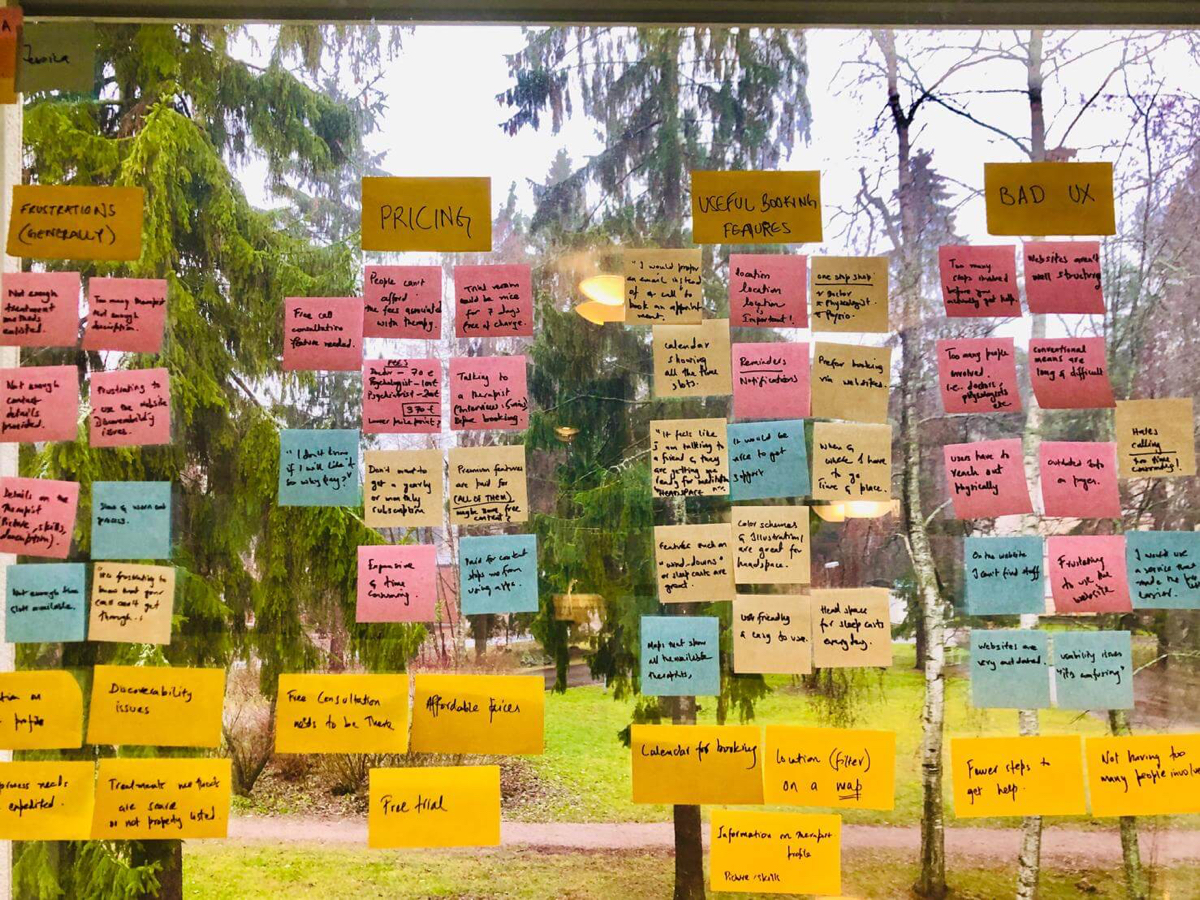 A
Jessica
FRUSTRATIONS
(GENERALLY)
Not enough
treatment
methods
enlisted.
Too many therapist
Not enough
description.
Not enough
contact
details
provided.
Frustrating to
use the website
Discoverability
issues.
Details on the
therapist
(Picture, skills,
description).
Slow & worn out
process.
Not enough time
slots available.
"its frustrating to
know that your
call can't get
through."
profile
Discoverability
issues
process needs
expedited.
Treatments methods
are scarce
or not properly listed.
PRICING
Free call
consultation
feature needed.
People can't
afford
the fees associated
with therapy.
Trial version
could be nice
for 7 days
free of charge.
Fees
Doctor - 70 €
Psychologist -
Psychiatrist -
370 €
Lower price point,
Talking to
a therapist
(Interviews)
Before booking.
"I don't know
if I will like it
so why pay?"
Don't want to
get a yearly
or monthly
subscription
Premium features
are paid for
(ALL OF THEM)
maybe some free
content?
Expensive
& time
consuming.
Paid for content
stops me from
using app.
Free Consultation
needs to be There
Affordable prices
Free trial
USEFUL BOOKING
FEATURES
"I would prefer
an email instead
of a call to
book an appoint
ment."
location
location
location is
Important!
one stop shop
Doctor
Physiologist.
Physio.
calendar
showing
all the time
slots.
Reminders
Notifications
Prefer booking
via website.
"It feels like
I am talking to
a friend & they
are getting me
ready for meditation"
HEADSPACE
It would be
nice to get
support
When &
where I have
to go
Time & place.
Features such as
"wind-downs"
or sleep casts are
great.
Color schemes
& Illustrations
are great for
headspace.
Maps that show
all the available
therapists,
User friendly
& easy to use.
Head space
for sleep casts
everyday.
Calendar for booking
Location (filter)
on a map
Information on therapist
profile
Picture/skills
BAD UX
Too many
steps involved
before you
actually get help.
Websites aren't
well structured
Too many people
involved.
i.e. doctors,
physiologists
etc
Conventional
means are
long & difficult
Hates
calling
time
users have to
reach out
physically
outdated info
on pages.
On the website
I can't find stuff
Frustrating
to use the
website
I would use
a service that
made the
easier.
Websites are
very outdated.
usability issues
"its confusing"
Fewer steps to
get help.
Not having too
many people involve